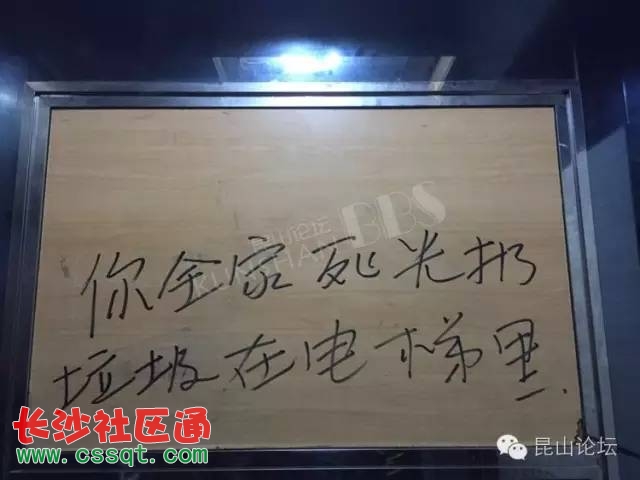 昆山论坛 BBS
KUNSHAN
你全家死光扔
垃圾在电梯里
长沙社区通
www.cssqt.com
昆山论坛